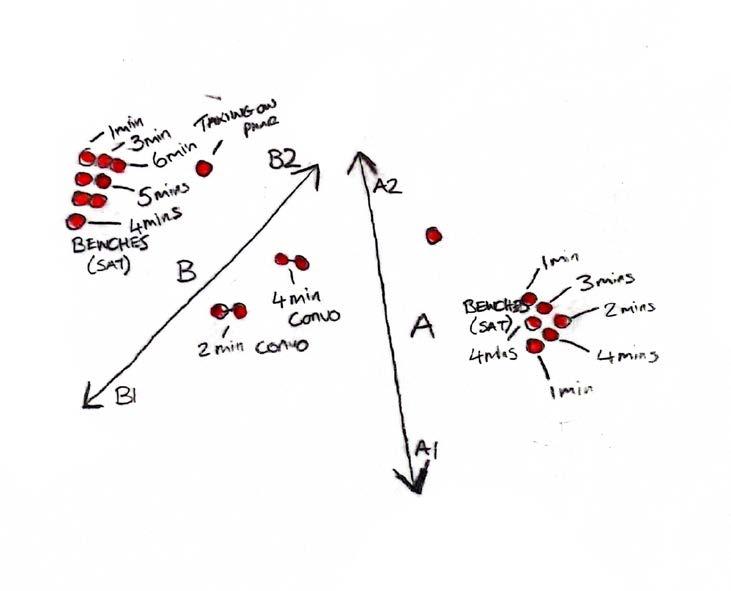 1min
3min
6min
5mins
4mins
BENCHES
(SAT)
TAKING ON
B2
B
B1
4 min
CONVO
2 min CONVO
A2
A
A1
BENCHES
(SAT)
1min
3mins
2mins
4mins
4mins
1min